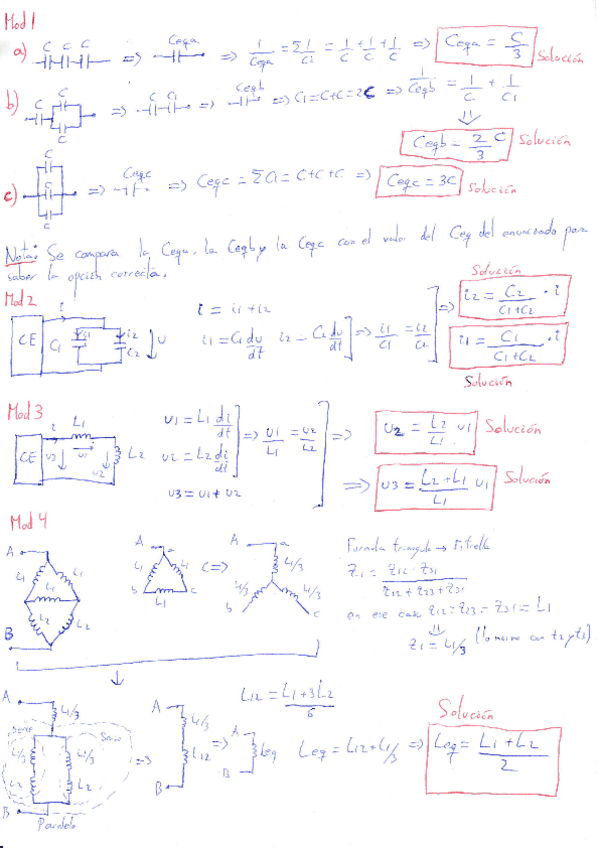 Mod 1
a) C C C => Ceqa => 1/Ceqa = Σ 1/Ci = 1/C + 1/C + 1/C => Ceqa = C/3 Solución
b) C C C => C C1 => Ceqb => C1 = C+C = 2C => 1/Ceqb = 1/C + 1/C1
=> Ceqb = 2/3 C Solución
c) C C C => Ceqc => Ceqc = ΣCi = C+C+C => Ceqc = 3C Solución
Nota: Se compara la Ceqa, la Ceqb y la Ceqc con el valor del Ceq del enunciado para
saber la opción correcta.
Solución
Mod 2
CE i C1 i1 i2 C2 u
i = i1 + i2
i1 = C1 du/dt i2 = C2 du/dt => i1/C1 = i2/C2 => i2 = C2/(C1+C2) · i
i1 = C1/(C1+C2) · i
Solución
Mod 3
CE i L1 u3 u1 u2 L2
u1 = L1 di/dt
u2 = L2 di/dt => u1/L1 = u2/L2 => u2 = L2/L1 u1 Solución
u3 = u1 + u2 => u3 = (L2+L1)/L1 u1 Solución
Mod 4
A L1 L1 L1 L2 L2 B
A a L1 L1 L1 b c <=> A a L1/3 L1/3 L1/3 b c
Formula triangulo → Estrella
Z1 = Z12 · Z31 / (Z12 + Z23 + Z31)
en ese caso Z12 = Z23 = Z31 = L1
Z1 = L1/3 (lo mismo con Z2 y Z3)
A L1/3 Serie Serie L1/3 L1/3 L2 L2 B Paralelo
=> A L1/3 L12 B => A Leq B
L12 = (L1+3L2)/6
Leq = L12 + L1/3 => Leq = (L1+L2)/2
Solución